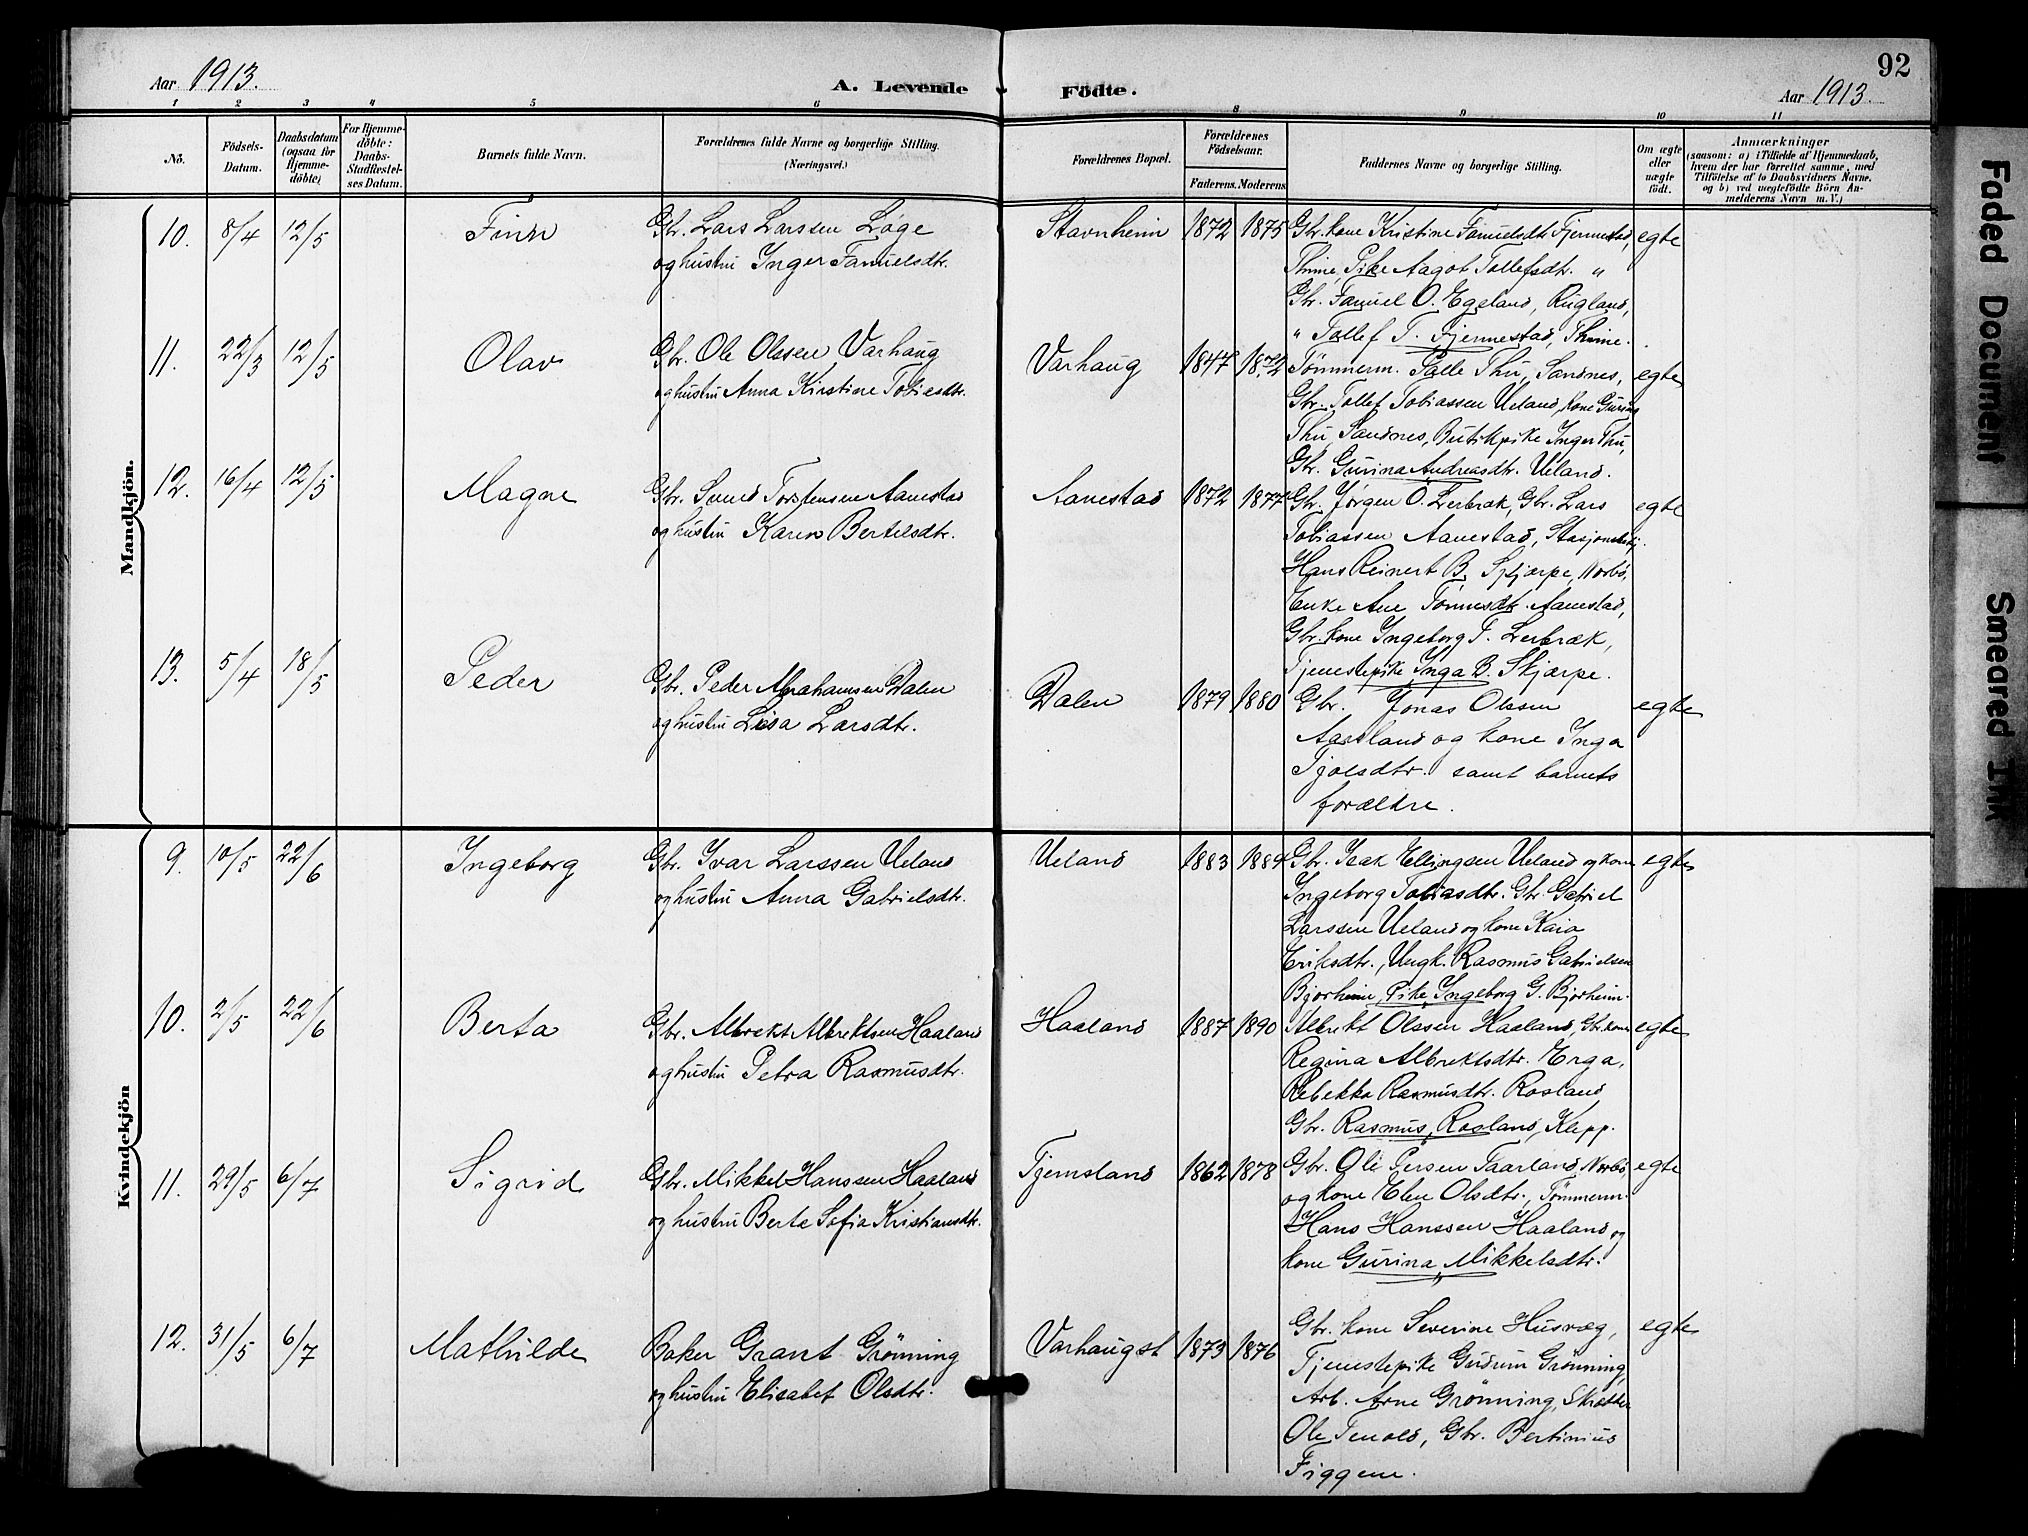 Aar 1913. A. Levende Födte. Aar 1913. 92
1 2 3 4 5 6 8 9 10 11
No.
Födsels-Datum.
Daabsdatum (ogsaa for Hjemme-döbte)
For Hjemme-döbte: Daabs-Stadfæstel-ses Datum.
Barnets fulde Navn.
Forældrenes fulde Navne og borgerlige Stilling. (Næringsvei.)
Forældrenes Bopæl.
Forældrenes Födselsaar.
Faderens. Moderens.
Faddernes Navne og borgerlige Stilling.
Om ægte eller uægte födt.
Anmærkninger
(saasom: a) i Tilfælde af Hjemmedaab, hvem der har forrettet samme, med Tilföielse af to Daabsvidners Navne, og b) ved uægtefödte Börn An-melderens Navn m.V.)
Mandkjön.
10. 8/4 12/5 Finn Gbr. Lars Larssen Løge Stavnheim 1872 1875 Gbr. kone Kristine Fanuelsdt. Fjermestad, egte
og hustru Inger Fanuelsdtr. Thime, Pike Aagot Tollefsdtr. "
Gbr. Fanuel O. Egeland, Rugland,
" Tollef T. Fjermestad, Thime.
11. 22/3 12/5 Olav Gbr. Ole Olssen Varhaug Varhaug 1847 1872 Tømmerm. Palle Thu, Sandnes, egte
og hustru Anna Kirstine Tobiesdtr. Gbr. Tollef Tobiassen Ueland, kone Gurina
Thu, Sandnes, Butikpike Inger Thu,
Gbr. Gurina Andreasdtr. Ueland.
12. 16/4 12/5 Magne Gbr. Svend Torstensen Aanestad Aanestad 1872 1877 Gbr. Jørgen O. Lerbræk, Gbr. Lars egte
og hustru Karen Bertelsdtr. Tobiassen Aanestad,
Hans Reinert B. Skjærpe, Nærbø,
Enke Ane Tønnesdt. Aanestad,
Gbr. kone Ingeborg T. Lerbræk,
Tjenestepike Inga B. Skjærpe.
13. 5/4 18/5 Peder Gbr. Peder Abrahamsen Dalen Dalen 1879 1880 Gbr. Jonas Olssen egte
og hustru Lisa Larsdtr. Aarsland og kone Inga
Tjølsdtr. samt barnets
forældre.
Kvindekjön
9. 10/5 22/6 Ingeborg Gbr. Ivar Larssen Ueland Ueland 1883 1889 Gbr. Isak Ellingsen Ueland og kone egte
og hustru Anna Gabrielsdtr. Ingeborg Tobiasdtr. Gbr. Gabriel
Larssen Ueland og kone Kaia
Eriksdtr., Ungk. Rasmus Gabrielsen
Bjorheim, Pike Ingeborg G. Bjorheim.
10. 2/5 22/6 Berta Gbr. Albrekt Albrektsen Haaland Haaland 1887 1890 Albrekt Olssen Haaland, Gbr. kone egte
og hustru Petra Rasmusdtr. Regina Albrektsdtr. Erga,
Rebekka Rasmusdtr. Rosland,
Gbr. Rasmus Rosland, Klepp.
11. 29/5 6/7 Sigrid Gbr. Mikkel Hanssen Haaland Tjemsland 1862 1878 Gbr. Ole Persen Taarland, Nærbø, egte
og hustru Berte Sofia Kristiansdt. og kone Elen Olsdtr., Tømmerm.
Hans Hanssen Haaland og
kone Gurina Mikkelsdtr.
12. 31/5 6/7 Mathilde Baker Grant Grönning Varhaugst 1873 1876 Gbr. kone Severine Husvæg, egte
og hustru Elisabet Olsdtr. Tjenestepike Gudrun Grønning,
Arb. Arne Grönning, Skrædder
Ole Tenold, Gbr. Bertinius
Figgene.
Faded Document
Smeared Ink